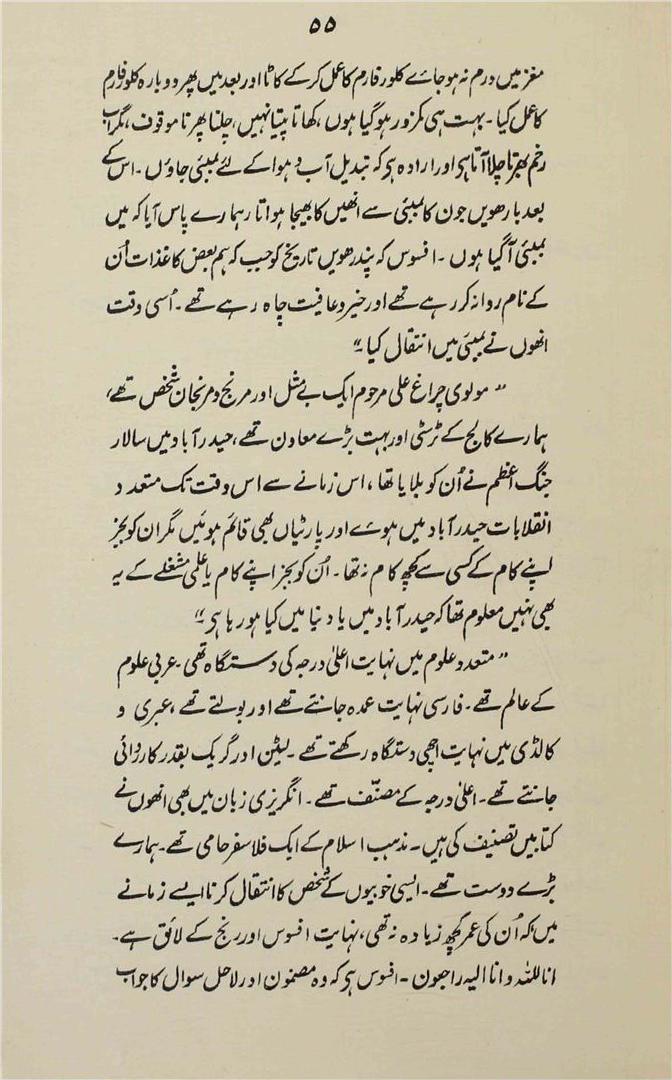 ۵۵
مغز میں ورم نہ ہو جائے کلورفارم کا عمل کرکے کاٹا اور بعد میں پھر دوبارہ کلورفارم
کا عمل کیا۔ بہت ہی کمزور ہوگیا ہوں، کھاتا پیتا نہیں، چلنا پھرنا موقوف، مگر اب
زخم بھرتا چلا آتا ہی اور ارادہ ہی کہ تبدیل آب و ہوا کے لئے بمبئی جاؤں۔ اس کے
بعد بارھویں جون کا بمبئی سے انھیں کا بھیجا ہوا تار ہمارے پاس آیا کہ میں
بمبئی آگیا ہوں۔ افسوس کہ پندرھویں تاریخ کو جب کہ ہم بعض کاغذات اُن
کے نام روانہ کر رہے تھے اور خیر و عافیت چاہ رہے تھے۔ اُسی وقت
انھوں نے بمبئی میں انتقال کیا۔"
"مولوی چراغ علی مرحوم ایک بے مثل اور مرنج و مرنجان شخص تھے،
ہمارے کالج کے ٹرسٹی اور بہت بڑے معاون تھے، حیدرآباد میں سالار
جنگ اعظم نے اُن کو بلایا تھا، اس زمانے سے اس وقت تک متعدد
انقلابات حیدرآباد میں ہوئے اور پارٹیاں بھی قائم ہوئیں مگر ان کو بجز
اپنے کام کے کسی سے کچھ کام نہ تھا۔ اُن کو بجز اپنے کام یا علمی مشغلے کے یہ
بھی نہیں معلوم تھا کہ حیدرآباد میں یا دنیا میں کیا ہو رہا ہی۔"
"متعدد علوم میں نہایت اعلیٰ درجہ کی دستگاہ تھی۔ عربی علوم
کے عالم تھے۔ فارسی نہایت عمدہ جانتے تھے اور بولتے تھے، عبری و
کالڈی میں نہایت اچھی دستگاہ رکھتے تھے۔ لیٹن اور گریک بقدر کارروائی
جانتے تھے۔ اعلیٰ درجہ کے مصنّف تھے۔ انگریزی زبان میں بھی انھوں نے
کتابیں تصنیف کی ہیں۔ مذہب اسلام کے ایک فلاسفر حامی تھے۔ ہمارے
بڑے دوست تھے۔ ایسی خوبیوں کے شخص کا انتقال کرنا ایسے زمانے
میں کہ اُن کی عمر کچھ زیادہ نہ تھی، نہایت افسوس اور رنج کے لائق ہے۔
انا للہ و انا الیہ راجعون۔ افسوس ہی کہ وہ مضمون اور لاحل سوال کا جواب